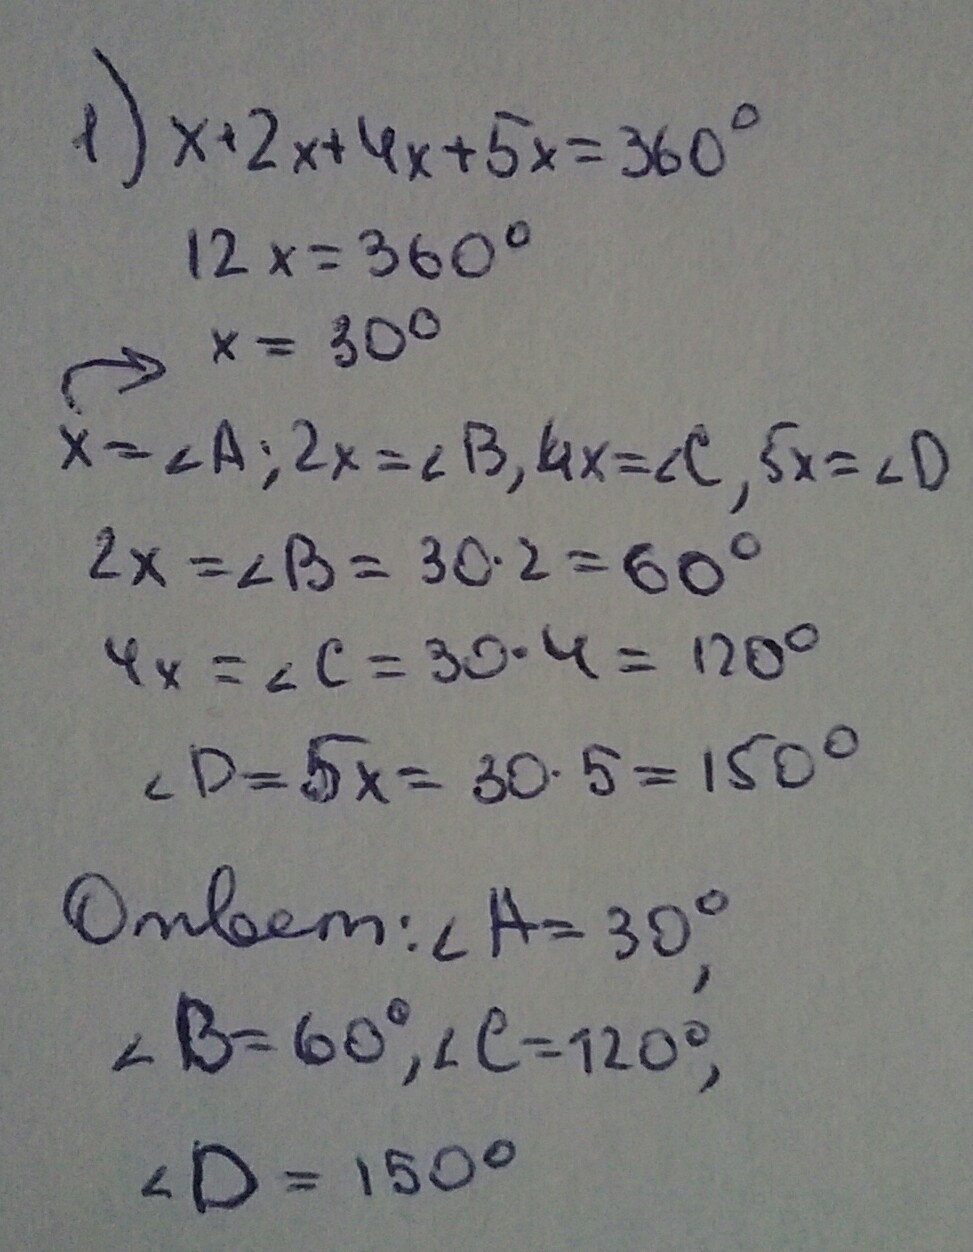 1) x+2x+4x+5x=360°
12x=360°
x = 30°
x=∠A; 2x=∠B, 4x=∠C, 5x=∠D
2x=∠B=30·2=60°
4x=∠C=30·4=120°
∠D=5x=30·5=150°
Ответ: ∠A=30°,
∠B=60°, ∠C=120°,
∠D=150°